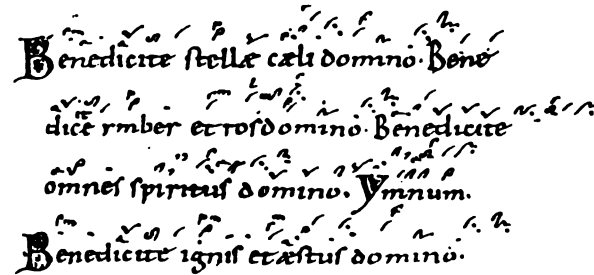 Benedicite stellæ cæli domino. Bene
dicite ymber et ros domino. Benedicite
omnes spiritus domino. Ymnum.
Benedicite ignis et æstus domino.